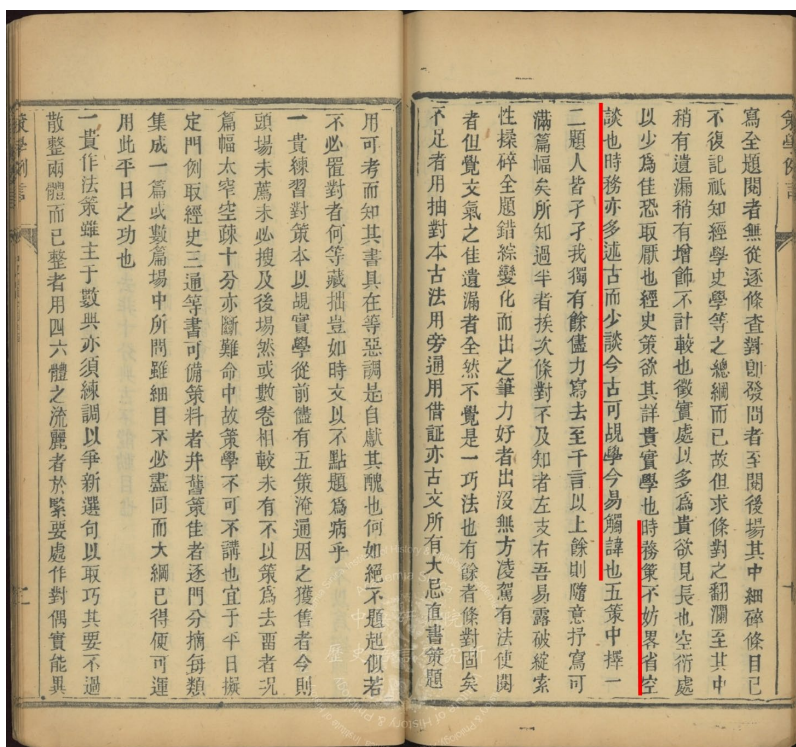 策學例言
寫全題閱者無從逐條查對卽發問者至閱後塲其中細碎條目已
不復記祇知經學史學等之總綱而已故但求條對之翻瀾至其中
稍有遺漏稍有增飾不計較也徵實處以多爲貴欲見長也空衍處
以少爲佳恐取厭也經史策欲其詳貴實學也時務策不妨畧省空
談也時務亦多述古而少談今古可覘學今易觸諱也五策中擇一
二題人皆孑孑我獨有餘儘力寫去至千言以上餘則隨意抒寫可
滿篇幅矣所知過半者挨次條對不及知者左支右吾易露破綻索
性揉碎全題錯綜變化而出之筆力好者出沒無方凌駕有法使閱
者但覺文氣之佳遺漏者全然不覺是一巧法也有餘者條對固矣
不足者用抽對本古法用旁通用借証亦古文所有大忌直書策題
用可考而知其書具在等惡調是自獻其醜也何如絕不題起似若
不必置對者何等藏拙豈如時文以不點題爲病乎
一貴練習對策本以覘實學從前儘有五策淹通因之獲售者今則
頭塲未薦未必搜及後塲然或數卷相較未有不以策爲去畱者况
篇幅太窄空疎十分亦斷難命中故策學不可不講也宜于平日擬
定門例取經史三通等書可備策料者并舊策佳者逐門分摘每類
集成一篇或數篇塲中所問雖細目不必盡同而大綱已得便可運
用此平日之功也
一貴作法策雖主于數典亦須練調以爭新選句以取巧其要不過
散整兩體而已整者用四六體之流麗者於緊要處作對偶實能異
策學例言